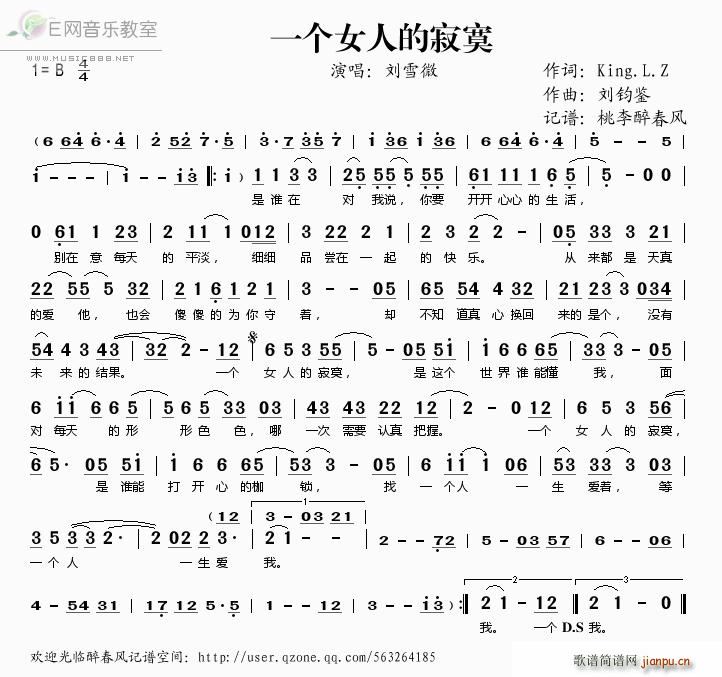 E网音乐教室
www.music888.net
一个女人的寂寞
1=B 4/4
演唱：刘雪微
作词：King.L.Z
作曲：刘钧鉴
记谱：桃李醉春风
( 6 64 6·4 | 2 52 7·5 | 3·7 35 7 | 1 36 1 36 | 6 64 6·4 | 5 - - 5 |
i - - - | i - - i3 |: i ) 1 1 3 3 | 25 55 5 55 | 61 1 1 6 5 | 5 - 0 0 |
是谁在 对 我说，你要 开开 心心的 生活，
0 61 1 23 | 2 11 1 012 | 3 22 2 1 | 2 3 2 - | 05 33 3 21 |
别在 意 每天 的 平淡，细细 品 尝在 一 起 的 快乐。 从 来都 是 天真
22 55 5 32 | 21 6 1 2 1 | 3 - - 05 | 65 54 4 32 | 21 23 3 034 |
的爱 他，也会 傻 傻的 为 你 守 着， 却 不知 道真 心 换回 来的 是个，没有
54 4 3 43 | 32 2 - 12 | 6 5 3 55 | 5 - 05 5i | i 6 6 65 | 33 3 - 05 |
未 来 的 结果。 一个 女 人 的 寂寞， 是 这个 世 界 谁 能懂 我， 面
6 ii 6 6 5 | 6 5 33 03 | 43 43 22 12 | 2 - 0 12 | 6 5 3 56 |
对 每天 的 形 形 色 色，哪 一次 需要 认真 把握。 一个 女 人 的 寂寞，
6 5· 05 5i | i 6 6 65 | 53 3 - 05 | 6 ii i 6 | 53 33 2 03 |
是 谁能 打 开 心 的枷 锁， 找 一个 人 一 生 爱着，等
(12 | 1 3 - 03 21 |
3 5 3 3 2 2· | 2 02 2 3· | 2 1 - - | 2 - - 72 | 5 - 03 57 | 6 - - 06 |
一 个 人 一 生 爱 我。
4 - 54 31 | 17 12 5·5 | 1 - - - | 3 - - i3 ) :| 2 2 1 - 12 | 3 2 1 - 0 |
我。 一个 D.S 我。
欢迎光临醉春风记谱空间：http://user.qzone.qq.com/563264185
歌谱简谱网 jianpu.cn